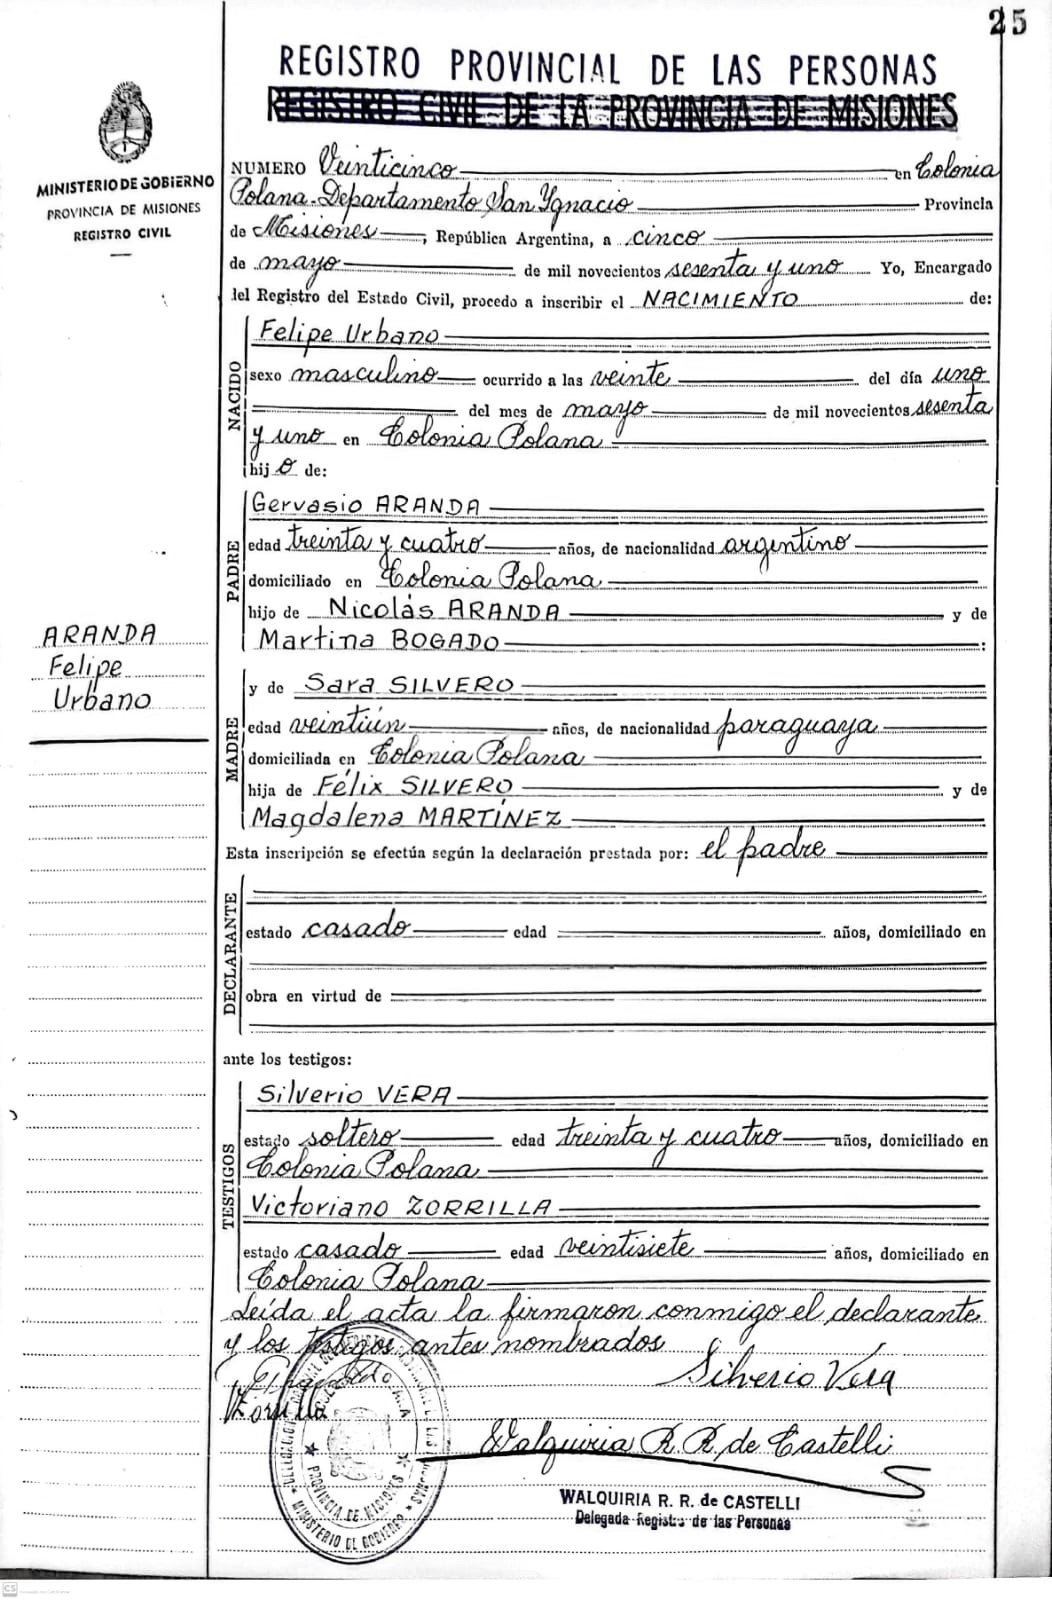 25
REGISTRO PROVINCIAL DE LAS PERSONAS
REGISTRO CIVIL DE LA PROVINCIA DE MISIONES
MINISTERIO DE GOBIERNO
PROVINCIA DE MISIONES
REGISTRO CIVIL
NUMERO Veinticinco en Colonia
Polana-Departamento San Ignacio Provincia
de Misiones, República Argentina, a cinco
de mayo de mil novecientos sesenta y uno Yo, Encargado
del Registro del Estado Civil, procedo a inscribir el NACIMIENTO de:
NACIDO
Felipe Urbano
sexo masculino ocurrido a las veinte del día uno
del mes de mayo de mil novecientos sesenta
y uno en Colonia Polana
hijo de:
PADRE
Gervasio ARANDA
edad treinta y cuatro años, de nacionalidad argentino
domiciliado en Colonia Polana
hijo de Nicolás ARANDA y de
Martina BOGADO:
ARANDA
Felipe
Urbano
MADRE
y de Sara SILVERO
edad veintiún años, de nacionalidad paraguaya
domiciliada en Colonia Polana
hija de Félix SILVERO y de
Magdalena MARTÍNEZ
Esta inscripción se efectúa según la declaración prestada por: el padre
DECLARANTE
estado casado edad años, domiciliado en
obra en virtud de
ante los testigos:
TESTIGOS
Silverio VERA
estado soltero edad treinta y cuatro años, domiciliado en
Colonia Polana
Victoriano ZORRILLA
estado casado edad veintisiete años, domiciliado en
Colonia Polana
Leída el acta la firmaron conmigo el declarante
y los testigos antes nombrados
Silverio Vera
Zorrilla
Walquiria R. R. de Castelli
WALQUIRIA R. R. de CASTELLI
Delegada Registro de las Personas
PROVINCIA DE MISIONES
MINISTERIO DE GOBIERNO
CS